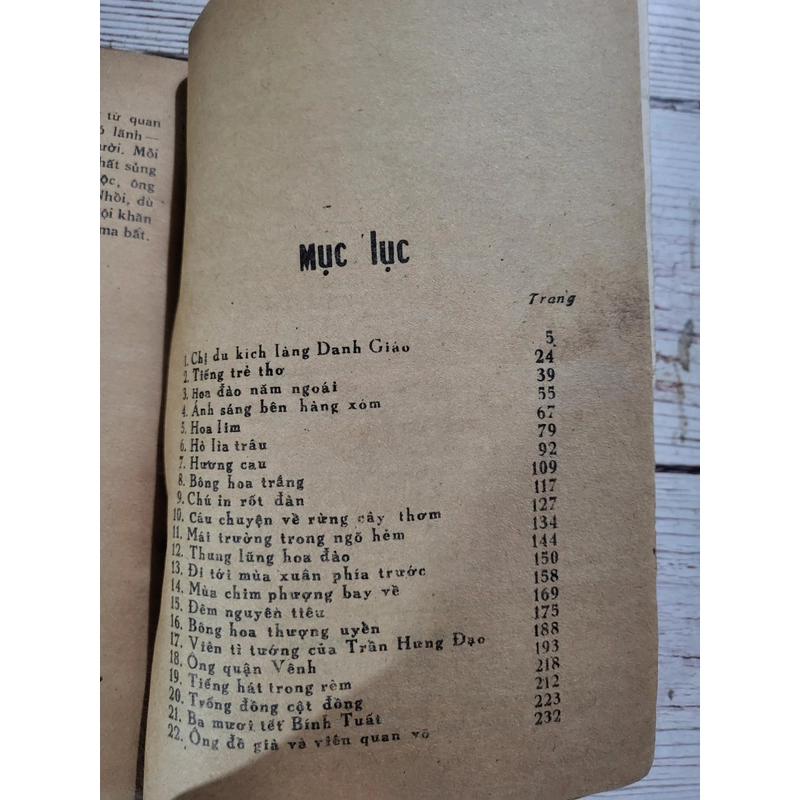 từ quan
lãnh —
ười. Mỗi
hất sủng
ộc, ông
Nhồi, dù
ội khăn
ma bất.
Mục lục
Trang
1. Chị du kích làng Danh Giáo 5
2. Tiếng trẻ thơ 24
3. Hoa đào năm ngoái 39
4. Ánh sáng bên hàng xóm 55
5. Hoa lim 67
6. Hò lìa trâu 79
7. Hương cau 92
8. Bông hoa trắng 109
9. Chú in rốt đàn 117
10. Câu chuyện về rừng cây thơm 127
11. Mái trường trong ngõ hẻm 134
12. Thung lũng hoa đào 144
13. Đi tới mùa xuân phía trước 150
14. Mùa chim phượng bay về 158
15. Đêm nguyên tiêu 169
16. Bông hoa thượng uyển 175
17. Viên tì tướng của Trần Hưng Đạo 188
18. Ông quận Vênh 193
19. Tiếng hát trong rèm 218
20. Trống đồng cột đồng 212
21. Ba mươi tết Bính Tuất 223
22. Ông đồ già và viên quan võ 232